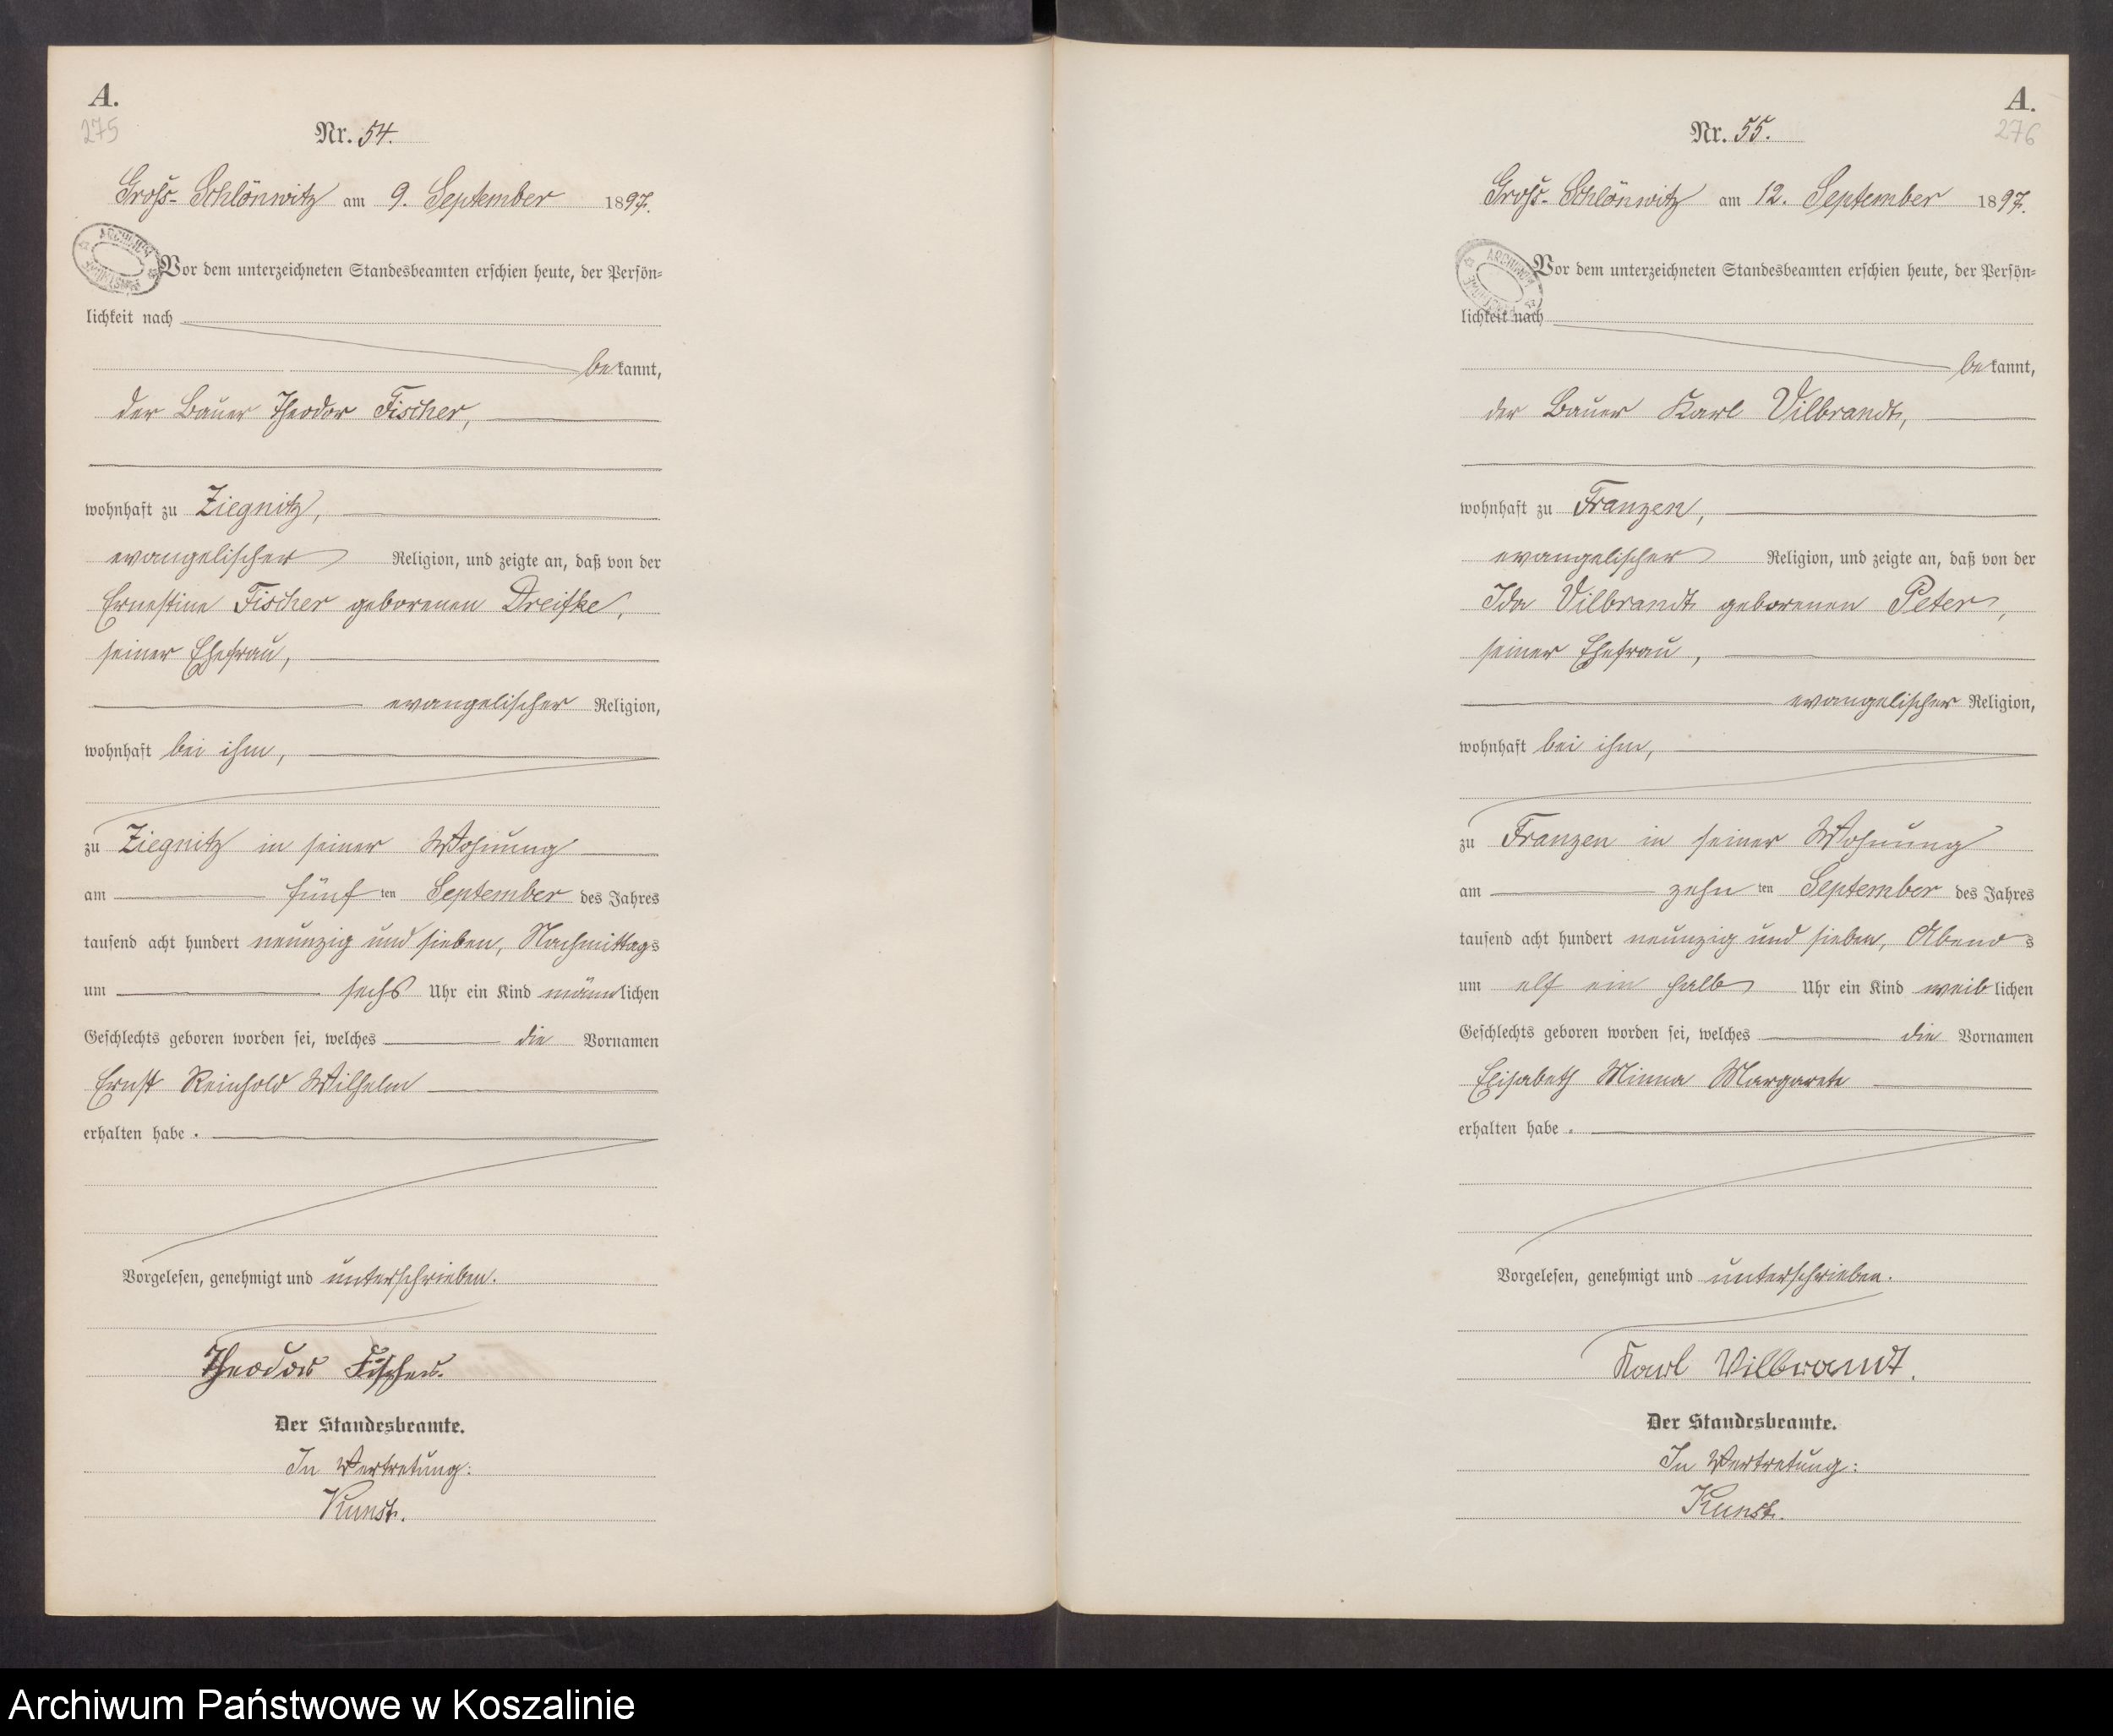 A.
275
Nr. 54.
Groß-Schlönwitz am 9. September 1897.
Vor dem unterzeichneten Standesbeamten erschien heute, der Persön=
lichkeit nach
bekannt,
der Bauer Theodor Fischer,
wohnhaft zu Ziegnitz,
evangelischer Religion, und zeigte an, daß von der
Ernestine Fischer geborenen Dreifke,
seiner Ehefrau,
evangelischer Religion,
wohnhaft bei ihm,
zu Ziegnitz in seiner Wohnung
am fünf ten September des Jahres
tausend acht hundert neunzig und sieben, Nachmittags
um sechs Uhr ein Kind männlichen
Geschlechts geboren worden sei, welches die Vornamen
Ernst Reinhold Wilhelm
erhalten habe.
Vorgelesen, genehmigt und unterschrieben.
Theodor Fischer.
Der Standesbeamte.
In Vertretung:
Kunst.
A.
276
Nr. 55.
Groß-Schlönwitz am 12. September 1897.
ARCHIWUM
Vor dem unterzeichneten Standesbeamten erschien heute, der Persön=
lichkeit nach
bekannt,
der Bauer Karl Vilbrandt,
wohnhaft zu Franzen,
evangelischer Religion, und zeigte an, daß von der
Ida Vilbrandt geborenen Peter,
seiner Ehefrau,
evangelischer Religion,
wohnhaft bei ihm,
zu Franzen in seiner Wohnung
am zehn ten September des Jahres
tausend acht hundert neunzig und sieben, Abends
um elf ein halb Uhr ein Kind weiblichen
Geschlechts geboren worden sei, welches die Vornamen
Elisabeth Minna Margarete
erhalten habe.
Vorgelesen, genehmigt und unterschrieben.
Karl Vilbrandt.
Der Standesbeamte.
In Vertretung:
Kunst.
Archiwum Państwowe w Koszalinie